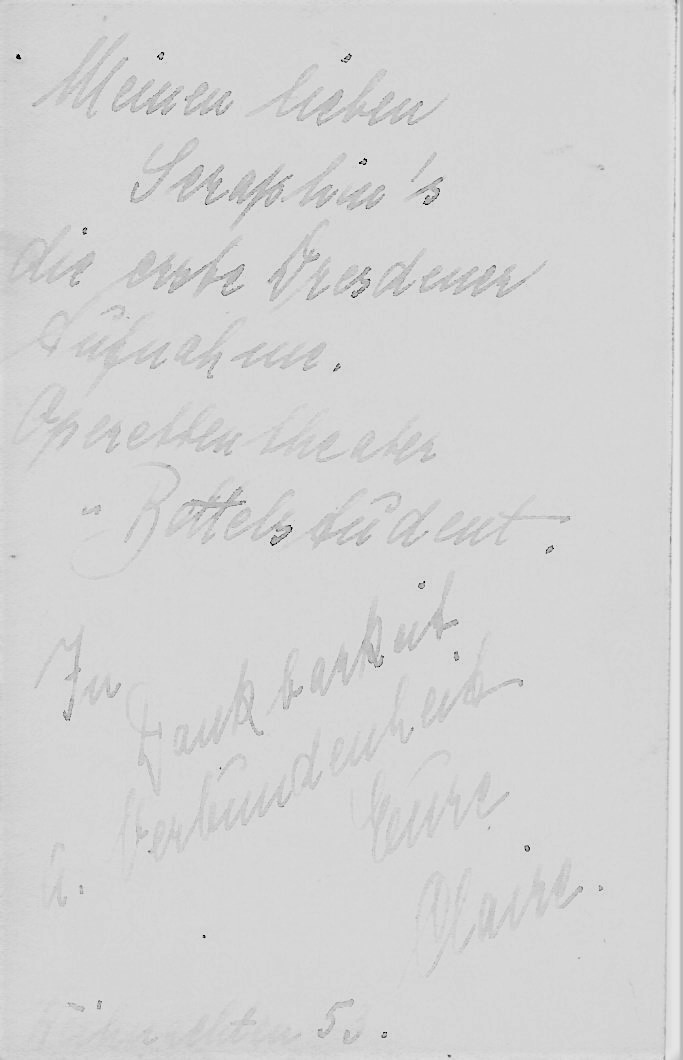 Meinen lieben
Seraphin's
die erste Dresdener
Aufnahme.
Operettentheater
"Bettelstudent.
In
Dankbarkeit
u. Verbundenheit
Eure
Claire.
Weihnachten 53.